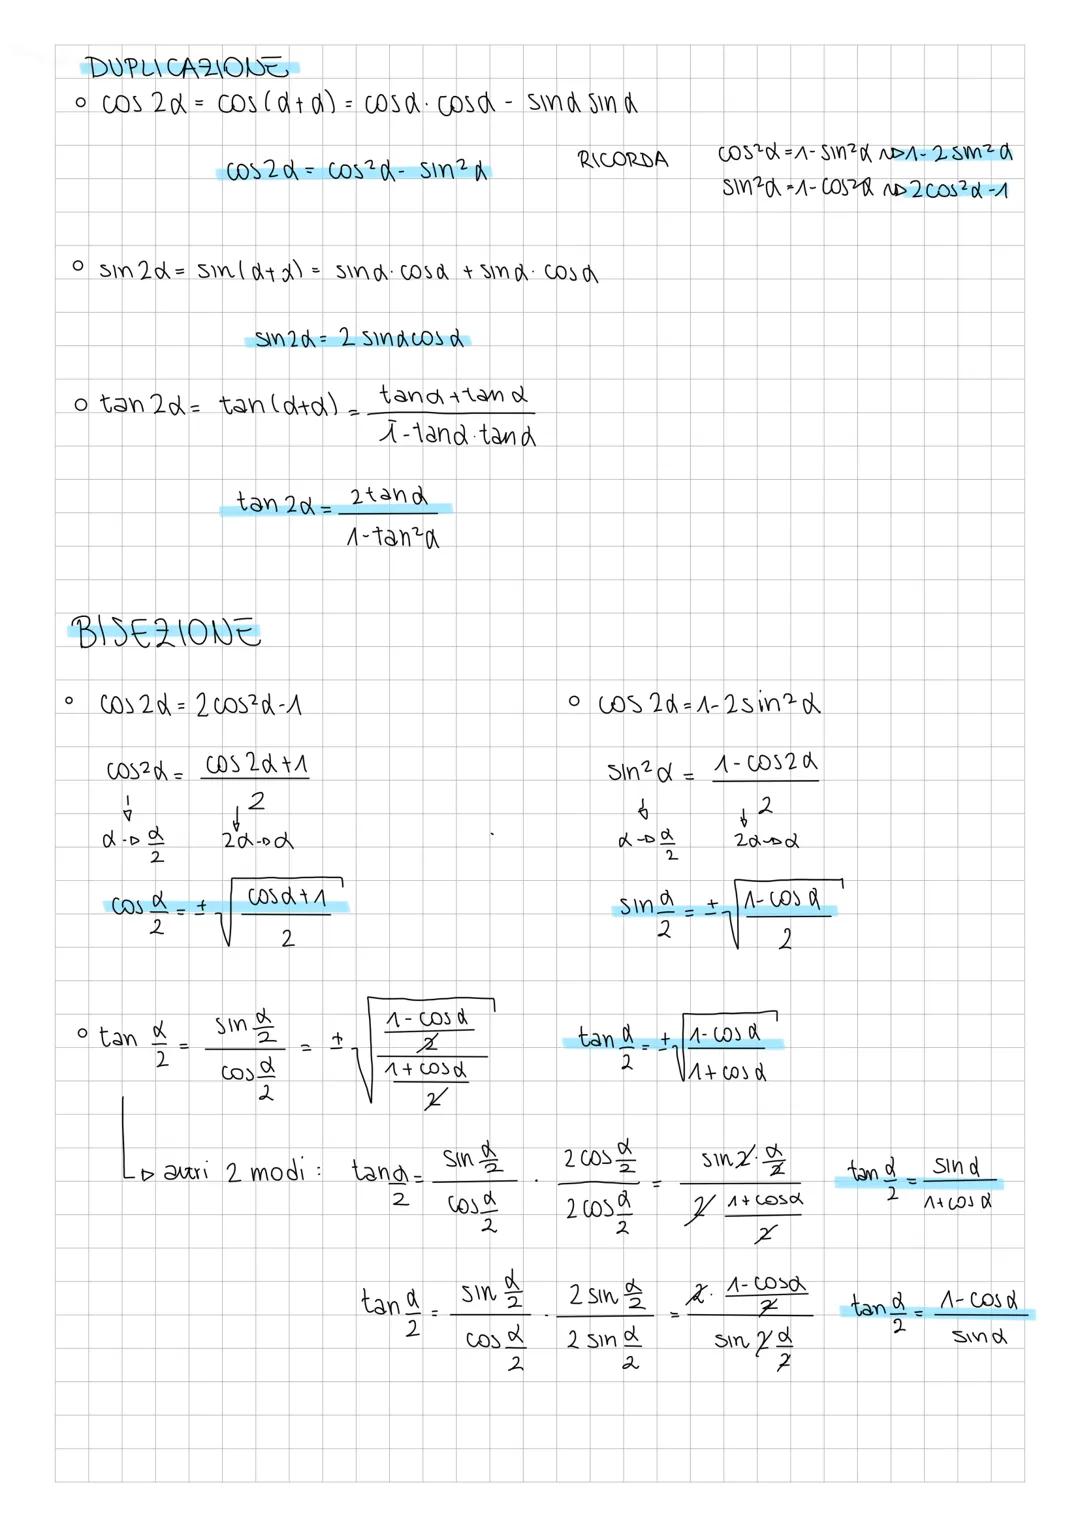 DUPLICAZIONE
cos 2α = cos(α+α) = cosα · cosα - sinα sinα
cos2α = cos²α - sin²α
RICORDA
cos²α = 1 - sin²α ⇝ 1 - 2 sin²α
sin²α = 1 - cos²α ⇝ 2cos²α - 1
sin 2α = sin(α+α) = sinα · cosα + sinα · cosα
sin2α = 2 sinα cosα
tan 2α = tan(α+α) = (tanα + tanα)/(1 - tanα · tanα)
tan 2α = 2tanα/(1 - tan²α)
BISEZIONE
cos 2α = 2cos²α - 1
cos²α = (cos 2α + 1)/2
α → α/2 2α → α
cos α/2 = ± √((cosα + 1)/2)
cos 2α = 1 - 2sin²α
sin²α = (1 - cos2α)/2
α → α/2 2α → α
sin α/2 = ± √((1 - cosα)/2)
tan α/2 = (sin α/2)/(cos α/2) = ± √(((1 - cosα)/2)/((1 + cosα)/2))
tan α/2 = ± √((1 - cosα)/(1 + cosα))
↳ altri 2 modi : tan α/2 = (sin α/2)/(cos α/2) · (2cos α/2)/(2cos α/2) = (sin 2 · α/2)/(2 (1 + cosα)/2) tan α/2 = sinα/(1 + cosα)
tan α/2 = (sin α/2)/(cos α/2) · (2 sin α/2)/(2 sin α/2) = (2 · (1 - cosα)/2)/(sin 2 α/2) tan α/2 = (1 - cosα)/sinα